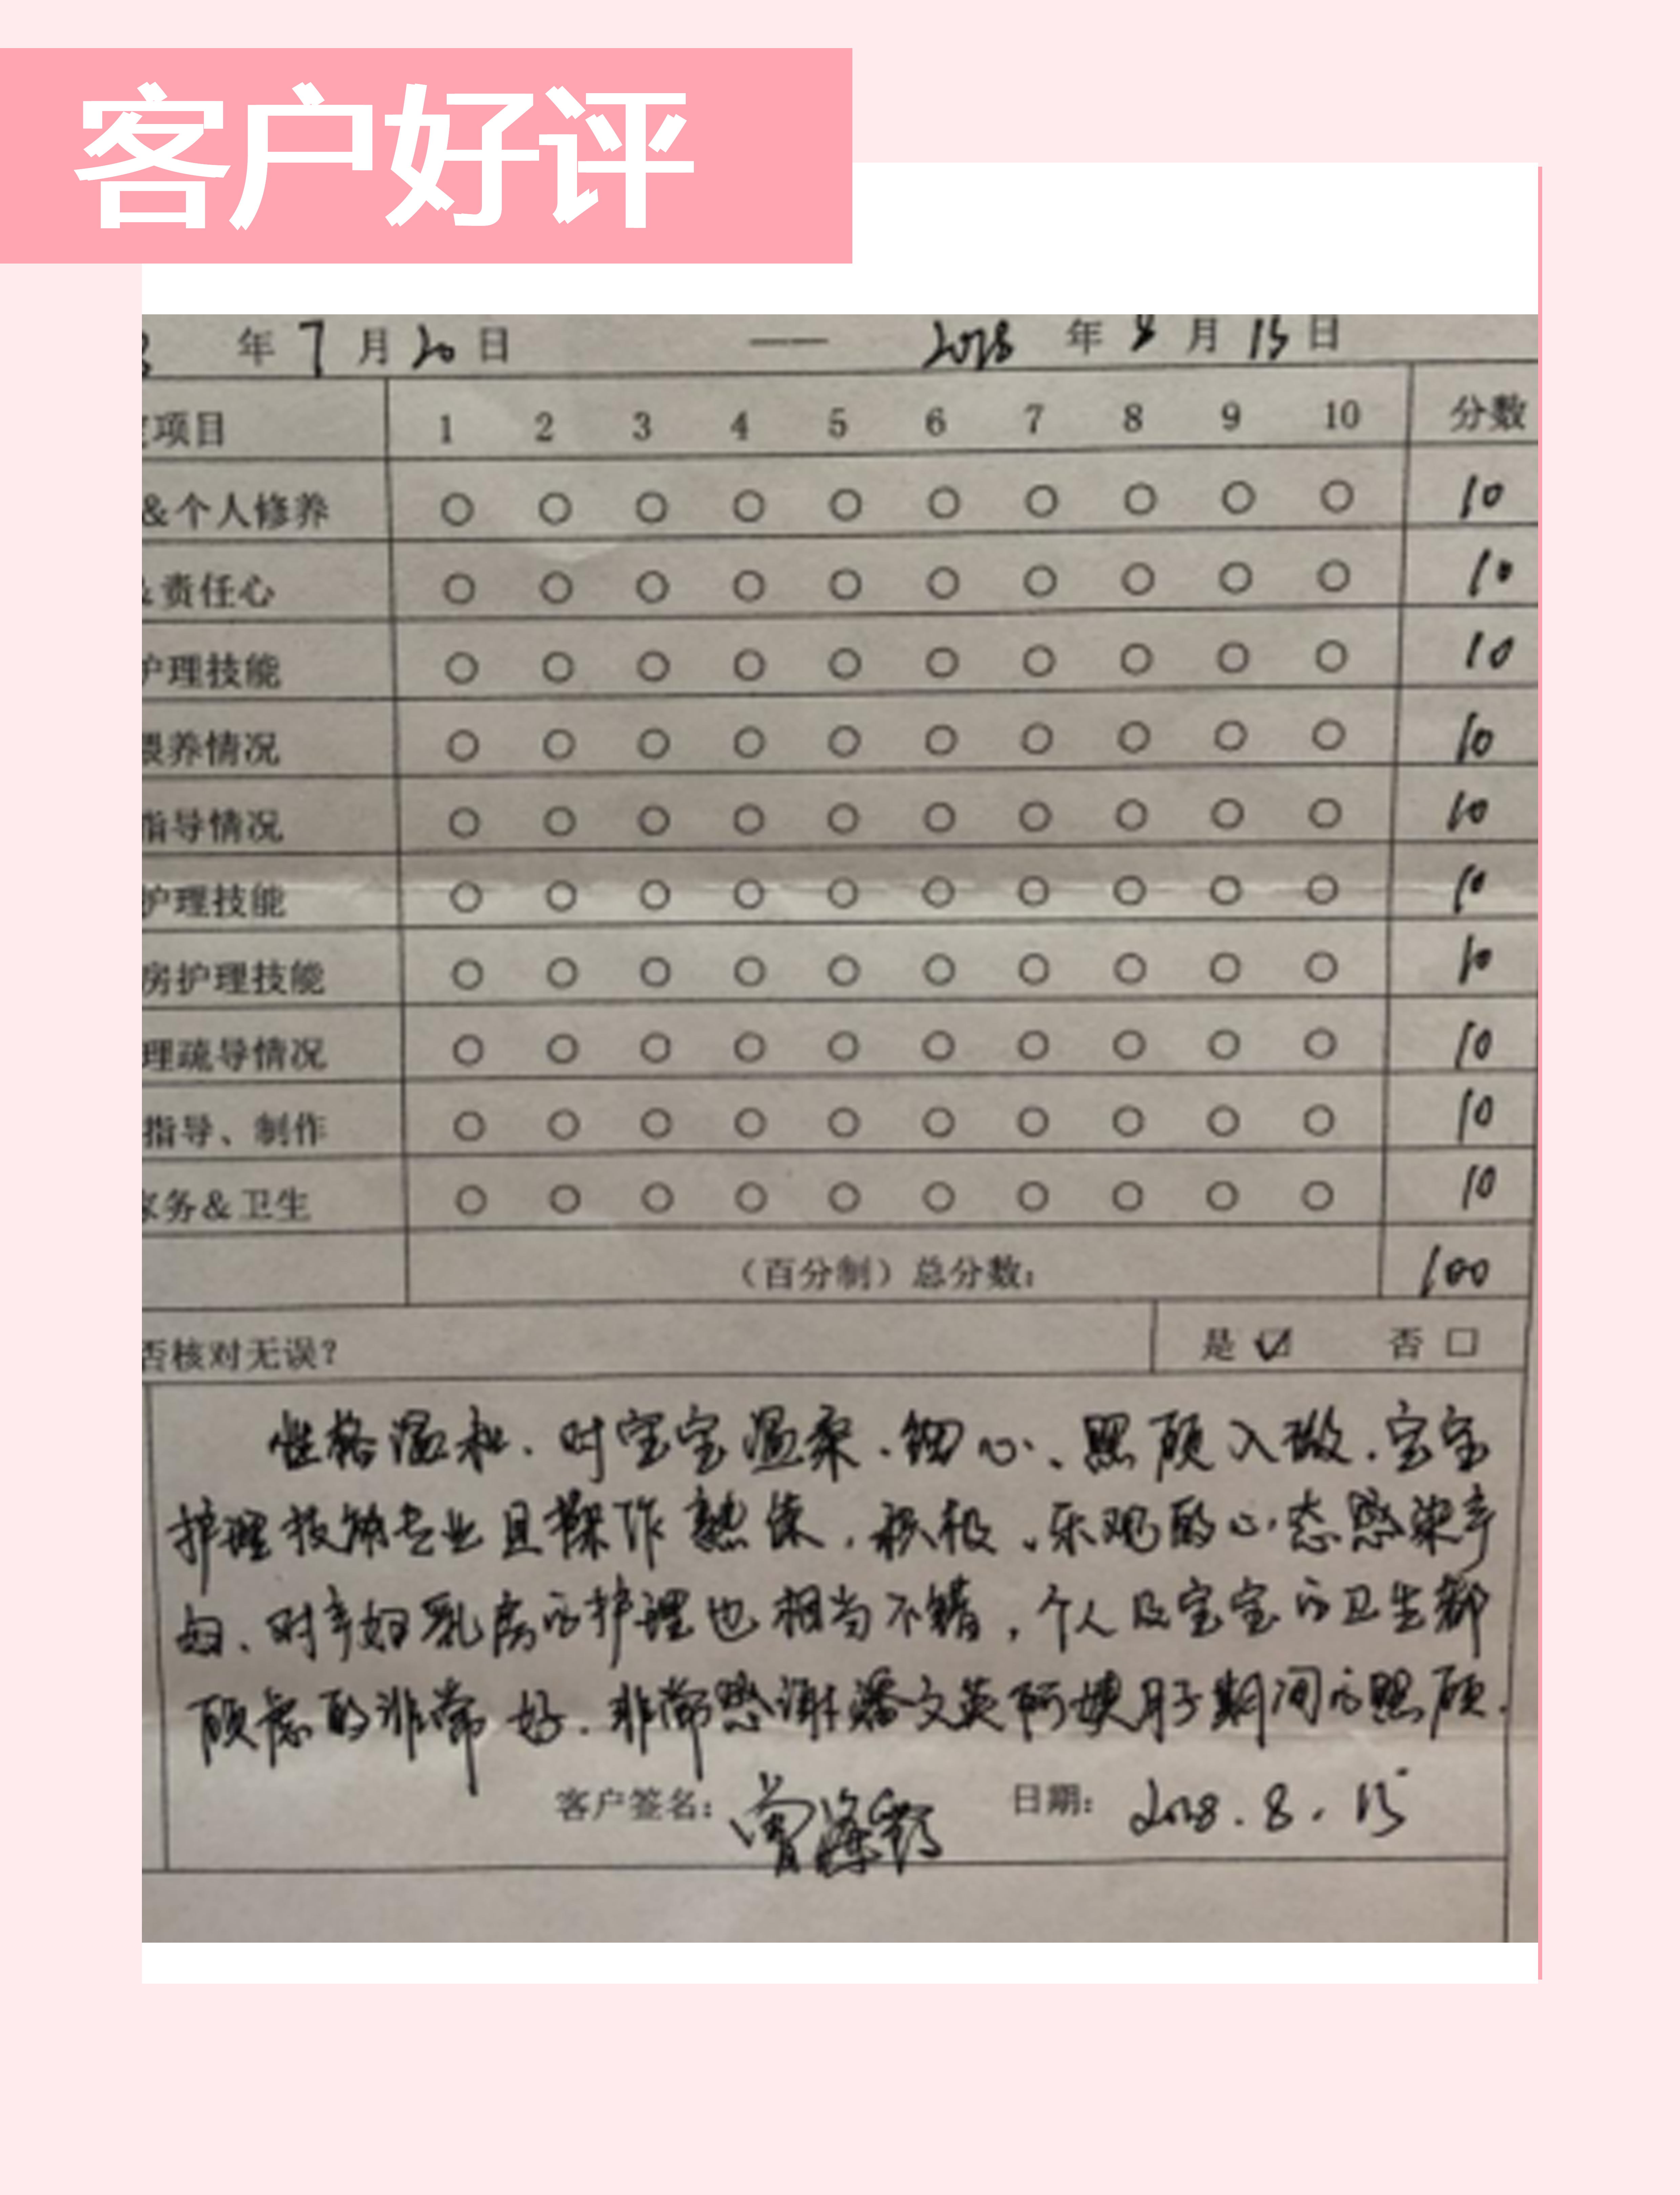 客户好评
年 7 月 20 日 —— 2018 年 8 月 15 日
项目 1 2 3 4 5 6 7 8 9 10 分数
&个人修养 ○ ○ ○ ○ ○ ○ ○ ○ ○ ○ 10
责任心 ○ ○ ○ ○ ○ ○ ○ ○ ○ ○ 10
护理技能 ○ ○ ○ ○ ○ ○ ○ ○ ○ ○ 10
喂养情况 ○ ○ ○ ○ ○ ○ ○ ○ ○ ○ 10
指导情况 ○ ○ ○ ○ ○ ○ ○ ○ ○ ○ 10
护理技能 ○ ○ ○ ○ ○ ○ ○ ○ ○ ○ 10
房护理技能 ○ ○ ○ ○ ○ ○ ○ ○ ○ ○ 10
理疏导情况 ○ ○ ○ ○ ○ ○ ○ ○ ○ ○ 10
指导、制作 ○ ○ ○ ○ ○ ○ ○ ○ ○ ○ 10
家务&卫生 ○ ○ ○ ○ ○ ○ ○ ○ ○ ○ 10
（百分制）总分数： 100
否核对无误？ 是 ☑ 否 □
性格温和、对宝宝温柔、细心、照顾入微、宝宝
护理技能专业且操作熟练，积极、乐观的心态感染产
妇、对产妇乳房的护理也相当不错，个人及宝宝的卫生都
顾虑的非常好.非常感谢潘文英阿姨月子期间的照顾.
客户签名： 日期： 2018.8.15